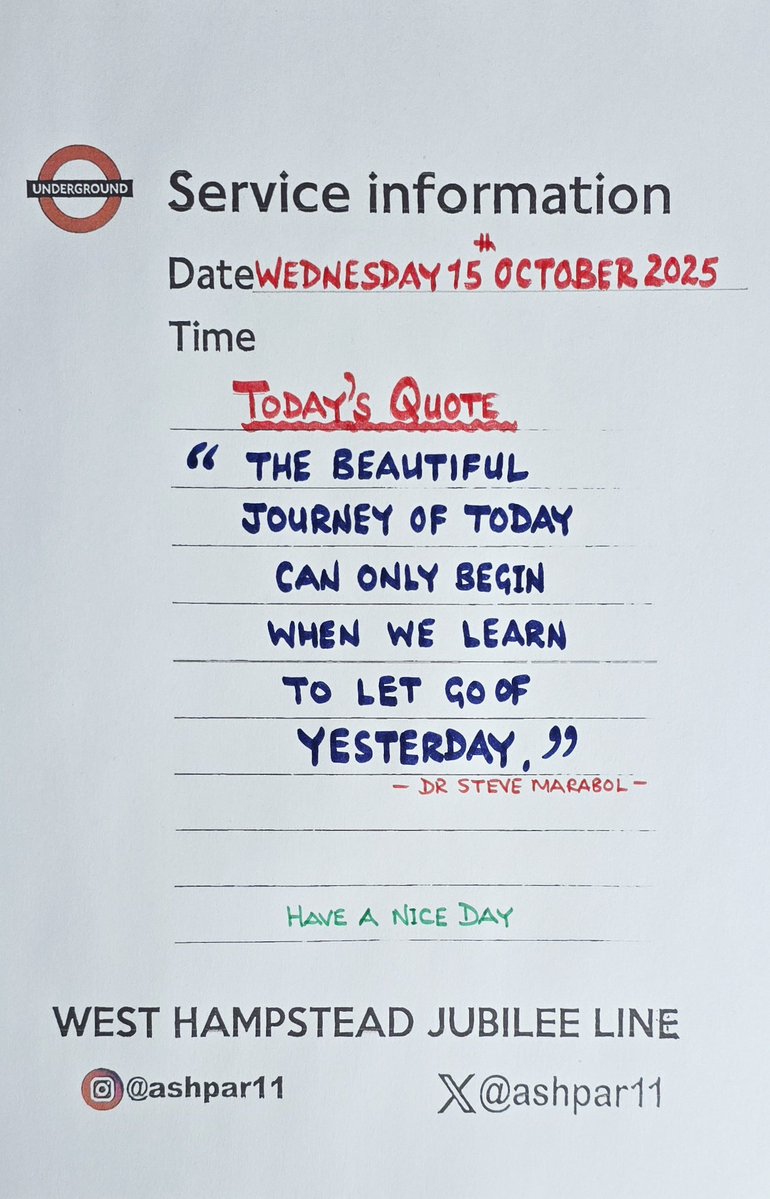 UNDERGROUND
Service information
Date WEDNESDAY 15th OCTOBER 2025
Time
TODAY'S QUOTE
“ THE BEAUTIFUL
JOURNEY OF TODAY
CAN ONLY BEGIN
WHEN WE LEARN
TO LET GO OF
YESTERDAY. ”
- DR STEVE MARABOL -
HAVE A NICE DAY
WEST HAMPSTEAD JUBILEE LINE
@ashpar11
X @ashpar11